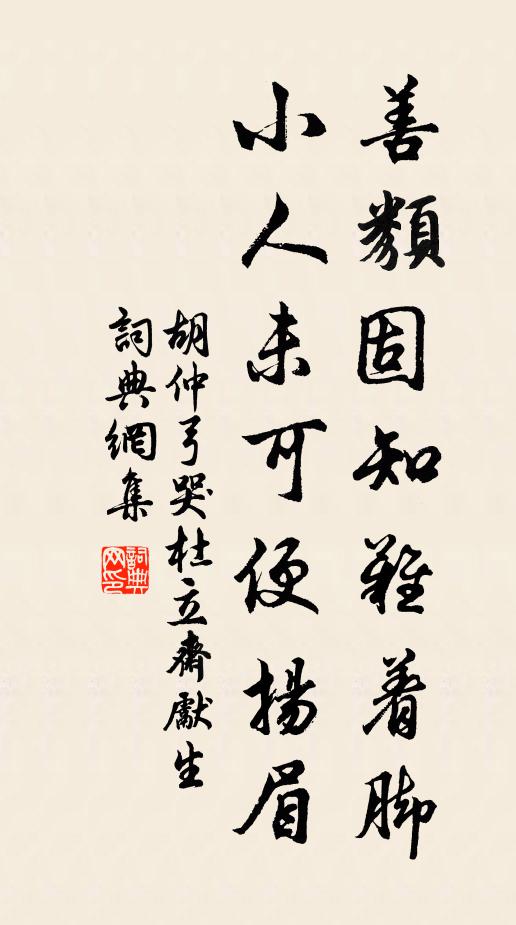 善類固知難着脚
小人未可便揚眉
胡仲弓哭杜立齋獻生
詞典網集
詞典網印